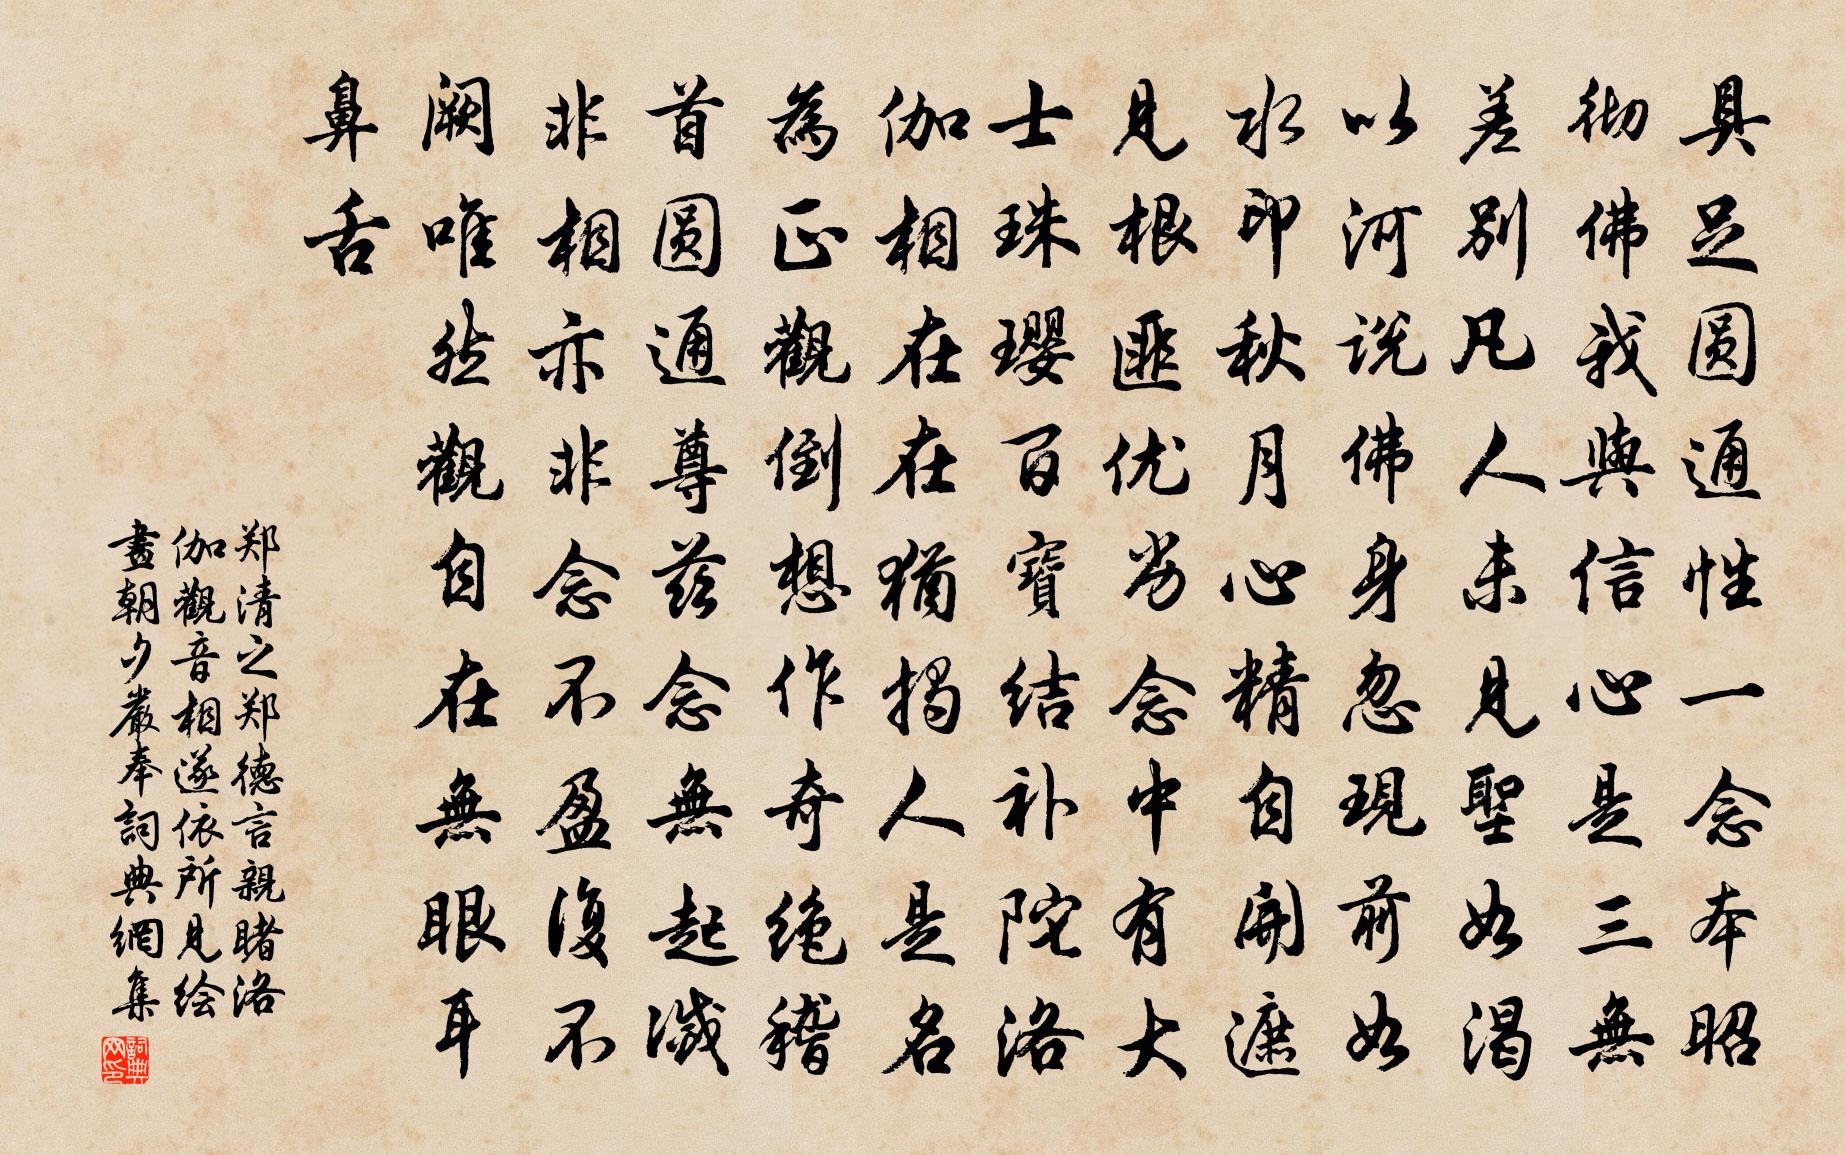 具足圆通性一念本昭
彻佛我與信心是三無
差别凡人未見聖如渴
以河说佛身忽現前如
水印秋月心精自開遮
見根匪优劣念中有大
士珠璎百寶结补陀洛
伽相在在猶揭人是名
為正觀倒想作奇绝稽
首圆通尊兹念無起滅
非相亦非念不盈復不
阙唯然觀自在無眼耳
鼻舌
郑清之郑德言親睹洛
伽觀音相遂依所見绘
畫朝夕嚴奉詞典網集
詞典网印